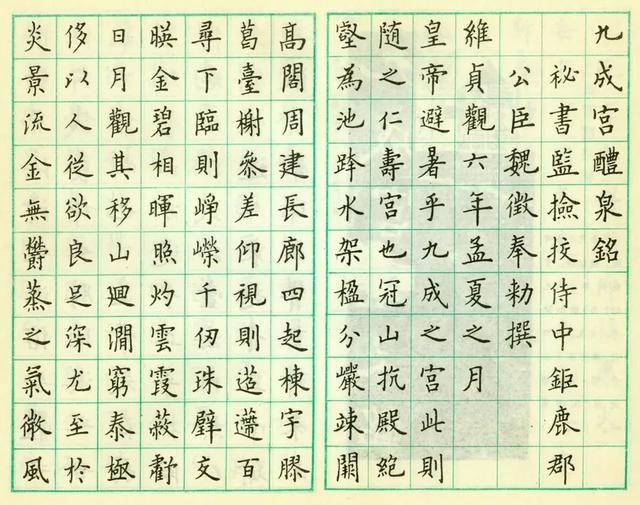 九成宮醴泉銘
秘書監撿挍侍中鉅鹿郡
公臣魏徵奉勅撰
維貞觀六年孟夏之月
皇帝避暑乎九成之宮此則
隨之仁壽宮也冠山抗殿絕
壑為池跨水架楹分巖竦闕
高閣周建長廊四起棟宇膠
葛臺榭參差仰視則迢遰百
尋下臨則崢嶸千仞珠壁交
暎金碧相暉照灼雲霞蔽虧
日月觀其移山迴澗窮泰極
侈以人從欲良足深尤至於
炎景流金無欝蒸之氣微風